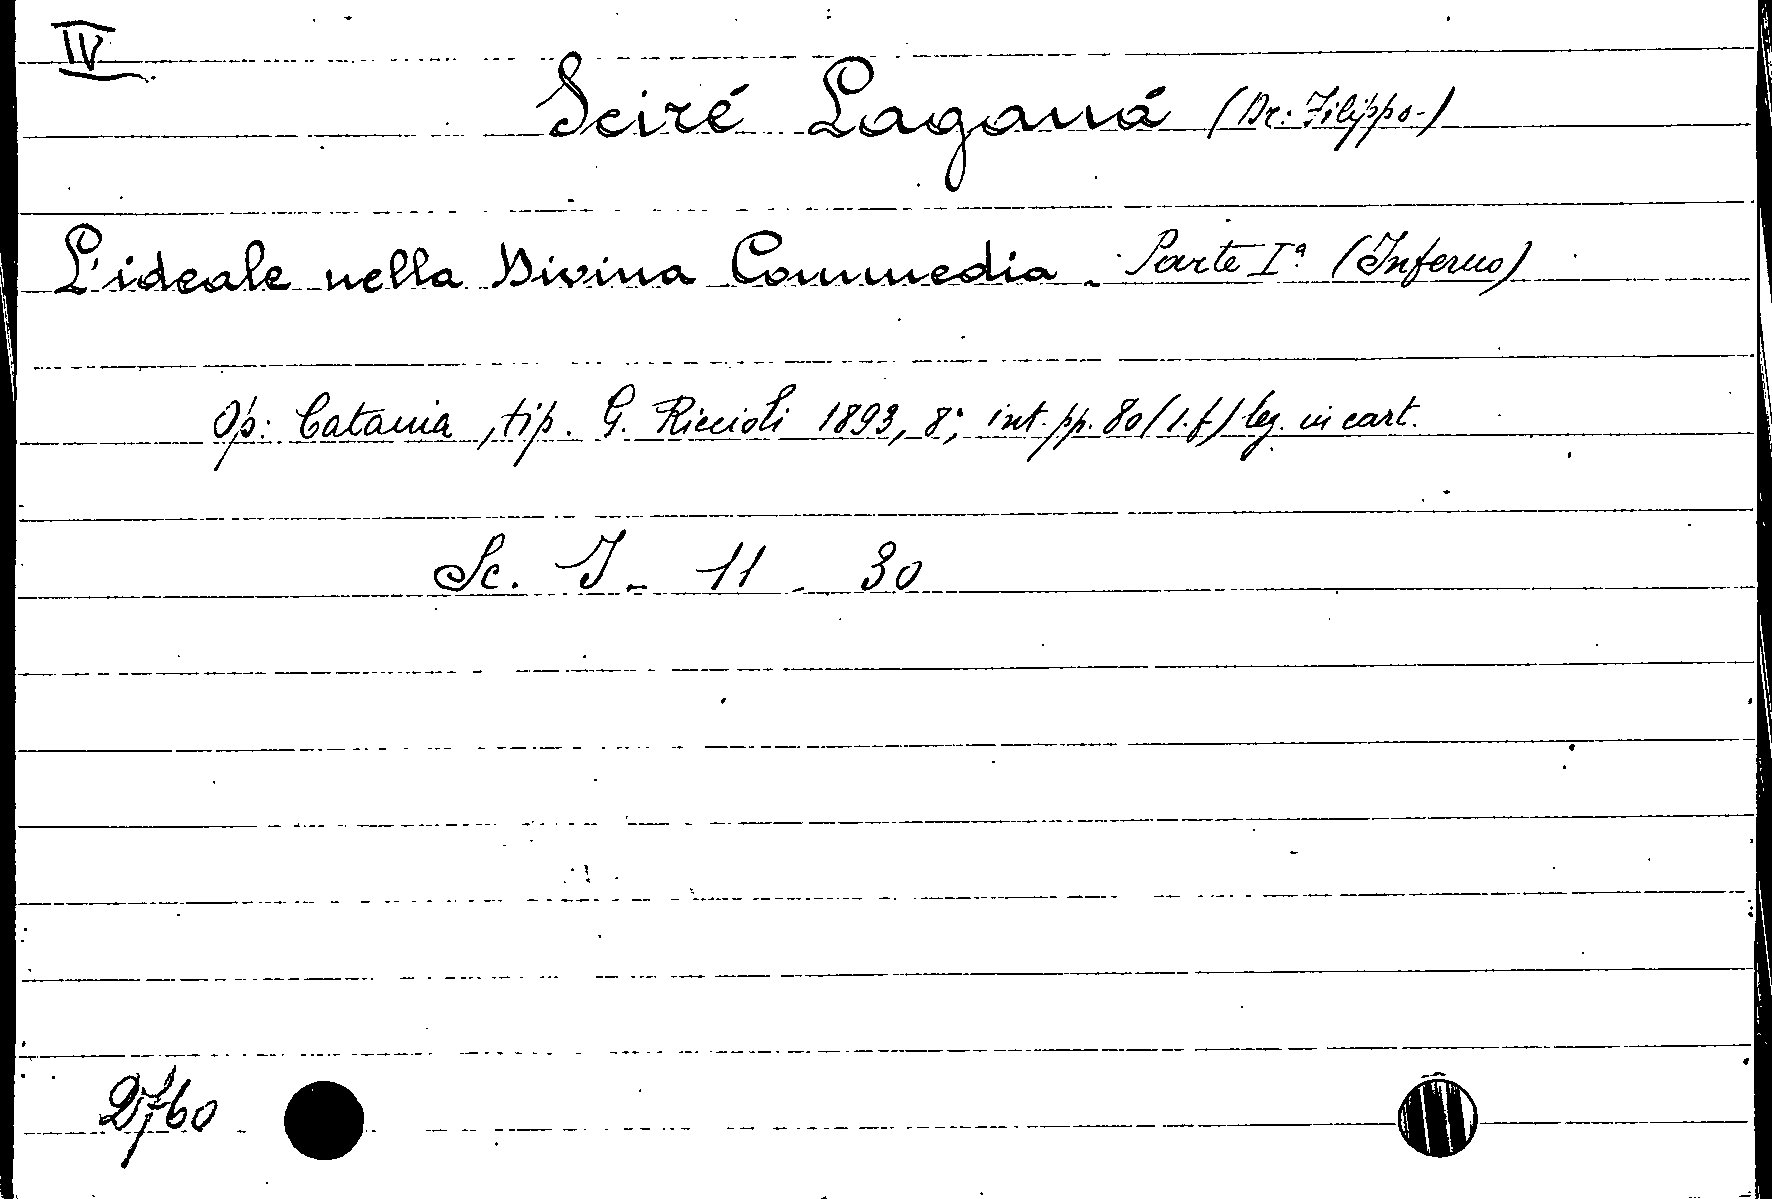 IV
Sciré Laganá (Dr: Filippo-)
L'ideale nella Divina Commedia. Parte Iª (Inferno)
Op: Catania, tip. G. Riccioli 1893, 8°, int. pp. 80 (1.f) leg. in cart.
Sc. I - 11 - 30
2760